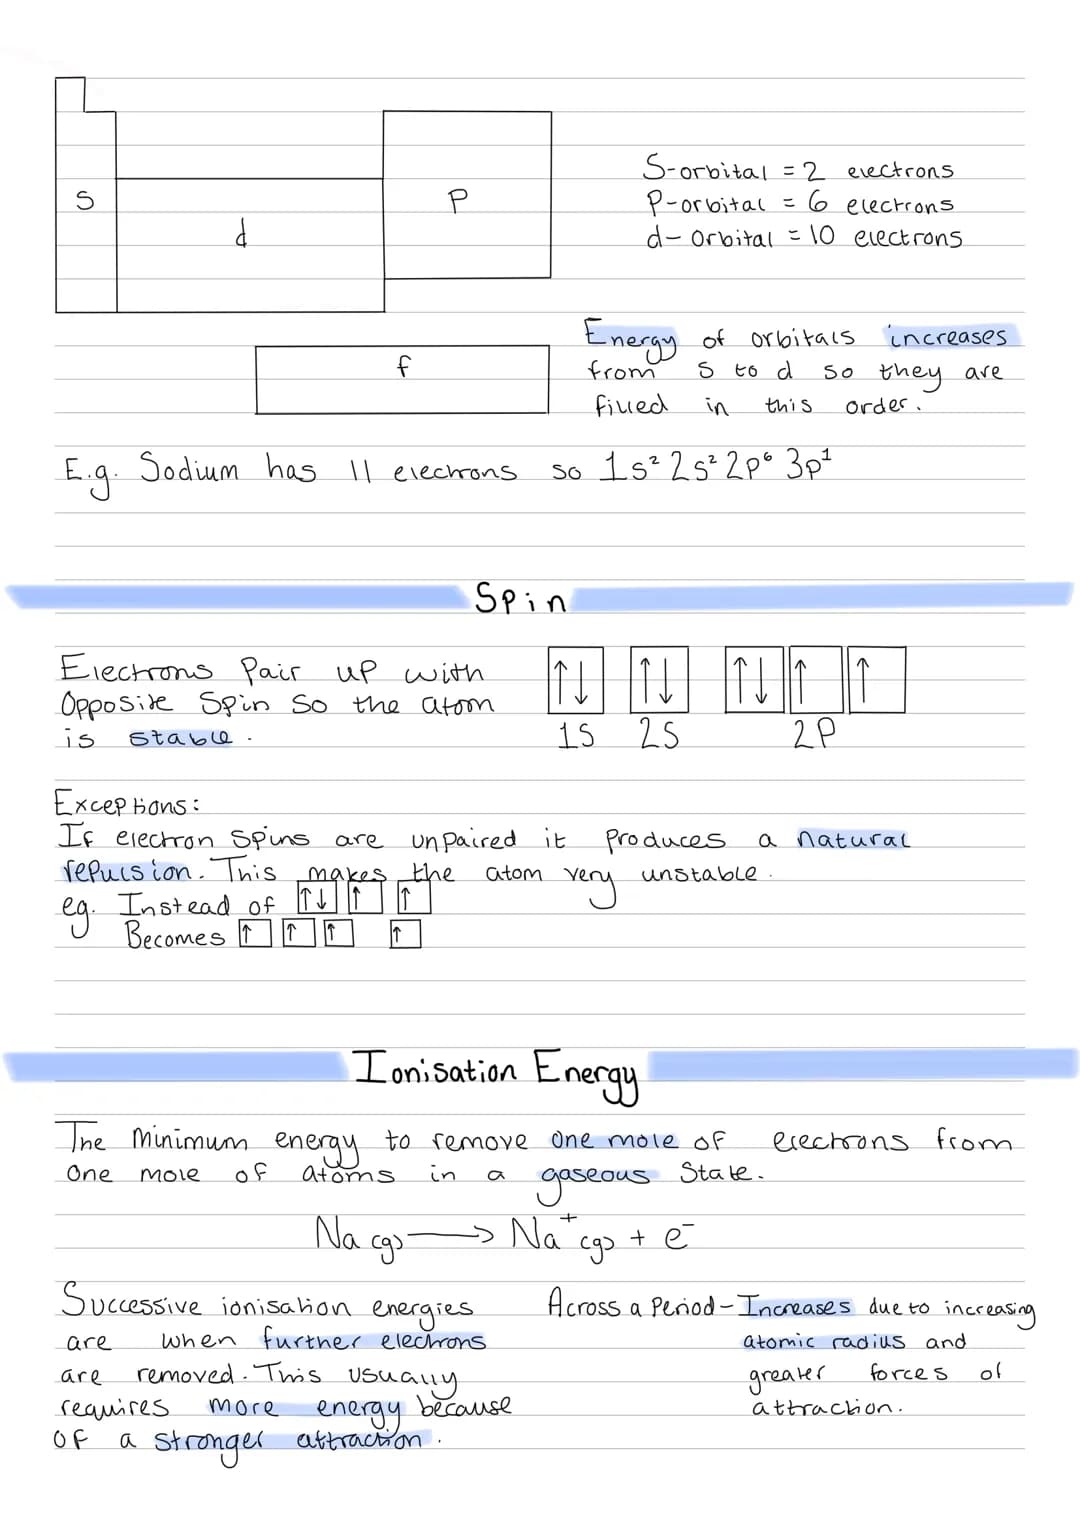 S
d
P
f
S-orbital = 2 electrons
P-orbital = 6 electrons
d-orbital = 10 electrons
Energy of orbitals increases
from s to d so they are
filled in this order.
E.g. Sodium has 11 electrons so 1s² 2s² 2p⁶ 3p¹
Spin
Electrons Pair up with
Opposite Spin so the atom
is stable.
↑↓ ↑↓ ↑↓ ↑ ↑
1S 2S 2P
Exceptions:
If electron spins are unpaired it produces a natural
repulsion. This makes the atom very unstable.
eg. Instead of ↑↓ ↑ ↑
Becomes ↑ ↑ ↑ ↑
Ionisation Energy
The Minimum energy to remove one mole of electrons from
One mole of atoms in a gaseous State.
Na (g) → Na⁺ (g) + e⁻
Successive ionisation energies
are when further electrons
are removed. This usually
requires more energy because
OF a stronger attraction.
Across a Period - Increases due to increasing
atomic radius and
greater forces of
attraction.